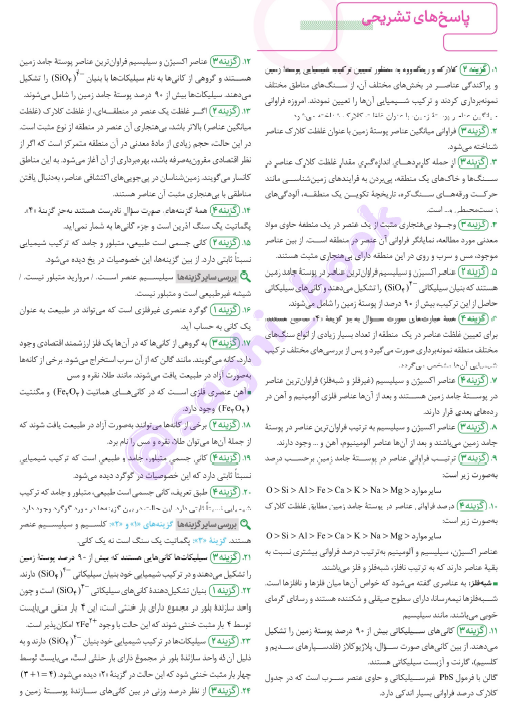 پاسخ‌های تشریحی
۱. گزینه ۲ کلارک و رینگ‌وود به منظور تعیین ترکیب شیمیایی پوستهٔ زمین
و پراکندگی عناصر در بخش‌های مختلف آن، از سنگ‌های مناطق مختلف
نمونه‌برداری کردند و ترکیب شیمیایی آن‌ها را تعیین نمودند. امروزه فراوانی
۲. گزینه ۳ فراوانی میانگین عناصر پوستهٔ زمین با عنوان غلظت کلارک عناصر
شناخته می‌شود.
۳. گزینه ۳ از جمله کاربردهای اندازه‌گیری مقدار غلظت کلارک عناصر در
سنگ‌ها و خاک‌های یک منطقه، پی‌بردن به فرایندهای زمین‌شناسی مانند
حرکت ورقه‌های سنگ‌کره، تاریخچهٔ تکوین یک منطقه، آلودگی‌های
زیست‌محیطی و... است.
۴. گزینه ۳ وجود بی‌هنجاری مثبت از یک عنصر در یک منطقه حاوی مواد
معدنی مورد مطالعه، نمایانگر فراوانی آن عنصر در منطقه است. از بین عناصر
موجود، مس و سرب و روی در این منطقه دارای بی‌هنجاری مثبت هستند.
۵. گزینه ۲ عناصر اکسیژن و سیلیسیم فراوان‌ترین عناصر در پوستهٔ جامد زمین
هستند که بنیان سیلیکاتی (SiO₄)⁴⁻ را تشکیل می‌دهند و کانی‌های سیلیکاتی
حاصل از این ترکیب، بیش از ۹۰ درصد از پوستهٔ زمین را شامل می‌شوند.
۶. گزینه ۴ همهٔ عبارت‌های صورت سؤال به جز گزینهٔ «۴» صحیح هستند.
برای تعیین غلظت عناصر در یک منطقه از تعداد بسیار زیادی از انواع سنگ‌های
مختلف منطقه نمونه‌برداری صورت می‌گیرد و پس از بررسی‌های مختلف ترکیب
شیمیایی آن‌ها مشخص می‌گردد.
۷. گزینه ۴ عناصر اکسیژن و سیلیسیم (غیرفلز و شبه‌فلز) فراوان‌ترین عناصر
در پوستهٔ جامد زمین هستند و بعد از آن‌ها عناصر فلزی آلومینیم و آهن در
رده‌های بعدی قرار دارند.
۸. گزینه ۳ عناصر اکسیژن و سیلیسیم به ترتیب فراوان‌ترین عناصر در پوستهٔ
جامد زمین می‌باشند و بعد از آن‌ها عناصر آلومینیوم، آهن و ... وجود دارند.
۹. گزینه ۳ ترتیب فراوانی عناصر در پوستهٔ جامد زمین برحسب درصد
به‌صورت زیر است:
O > Si > Al > Fe > Ca > K > Na > Mg > سایر موارد
۱۰. گزینه ۴ درصد فراوانی عناصر در پوستهٔ جامد زمین مطابق غلظت کلارک
به‌صورت زیر است:
O > Si > Al > Fe > Ca > K > Na > Mg > سایر موارد
عناصر اکسیژن، سیلیسیم و آلومینیم به‌ترتیب درصد فراوانی بیشتری نسبت به
بقیهٔ عناصر دارند که به ترتیب نافلز، شبه‌فلز و فلز می‌باشند.
شبه‌فلز: به عناصری گفته می‌شود که خواص آن‌ها میان فلزها و نافلزها است.
شبه‌فلزها نیمه‌رسانا، دارای سطوح صیقلی و شکننده هستند و رسانای گرمای
خوبی می‌باشند. مانند سیلیسیم
۱۱. گزینه ۳ کانی‌های سیلیکاتی بیش از ۹۰ درصد پوستهٔ زمین را تشکیل
می‌دهند. از بین کانی‌های صورت سؤال، پلاژیوکلاز (فلدسپارهای سدیم و
کلسیم)، گارنت و آزبست سیلیکاتی هستند.
گالن با فرمول PbS غیرسیلیکاتی و حاوی عنصر سرب است که در جدول
کلارک درصد فراوانی بسیار اندکی دارد.
۱۲. گزینه ۳ عناصر اکسیژن و سیلیسیم فراوان‌ترین عناصر پوستهٔ جامد زمین
هستند و گروهی از کانی‌ها به نام سیلیکات‌ها با بنیان (SiO₄)⁴⁻ را تشکیل
می‌دهند. سیلیکات‌ها بیش از ۹۰ درصد پوستهٔ جامد زمین را شامل می‌شوند.
۱۳. گزینه ۲ اگر غلظت یک عنصر در منطقه‌ای، از غلظت کلارک (غلظت
میانگین عناصر) بالاتر باشد، بی‌هنجاری آن عنصر در منطقه از نوع مثبت است.
در این حالت، حجم زیادی از مادهٔ معدنی در آن منطقه متمرکز است که اگر از
نظر اقتصادی مقرون‌به‌صرفه باشد، بهره‌برداری از آن آغاز می‌شود. به این مناطق
کانسار می‌گویند. زمین‌شناسان در پی‌جویی‌های اکتشافی عناصر، به‌دنبال یافتن
مناطقی با بی‌هنجاری مثبت آن عناصر هستند.
۱۴. گزینه ۴ همهٔ گزینه‌های صورت سؤال نادرست هستند به‌جز گزینهٔ «۴».
پگماتیت یک سنگ آذرین است و جزء کانی‌ها به شمار نمی‌آید.
۱۵. گزینه ۲ کانی جسمی است طبیعی، متبلور و جامد که ترکیب شیمیایی
نسبتاً ثابتی دارد. از بین گزینه‌ها، این خصوصیات در یخ دیده می‌شود.
بررسی سایر گزینه‌ها سیلیسیم عنصر است. / مروارید متبلور نیست. /
شیشه غیرطبیعی است و متبلور نیست.
۱۶. گزینه ۱ گوگرد عنصری غیرفلزی است که می‌تواند در طبیعت به عنوان
یک کانی به حساب آید.
۱۷. گزینه ۳ به گروهی از کانی‌ها که در آن‌ها یک فلز ارزشمند اقتصادی وجود
دارد، کانه می‌گویند. مانند گالن که از آن سرب استخراج می‌شود. برخی از کانه‌ها
به‌صورت آزاد در طبیعت یافت می‌شوند. مانند طلا، نقره و مس
آهن عنصری فلزی است که در کانی‌های هماتیت (Fe₂O₃) و مگنتیت
(Fe₃O₄) وجود دارد.
۱۸. گزینه ۲ برخی از کانه‌ها می‌توانند به‌صورت آزاد در طبیعت یافت شوند که
از جملهٔ آن‌ها می‌توان طلا، نقره و مس را نام برد.
۱۹. گزینه ۴ کانی جسمی متبلور، جامد و طبیعی است که ترکیب شیمیایی
نسبتاً ثابتی دارد که این خصوصیات در گوگرد دیده می‌شود.
۲۰. گزینه ۴ طبق تعریف، کانی جسمی است طبیعی، متبلور و جامد که ترکیب
شیمیایی نسبتاً ثابتی دارد. این حالت در بین گزینه‌ها در مورد گوگرد وجود دارد.
بررسی سایر گزینه‌ها گزینه‌های «۱» و «۲»: کلسیم و سیلیسیم عنصر
هستند. گزینهٔ «۳»: پگماتیت یک سنگ است نه یک کانی.
۲۱. گزینه ۳ سیلیکات‌ها کانی‌هایی هستند که بیش از ۹۰ درصد پوستهٔ زمین
را تشکیل می‌دهند و در ترکیب شیمیایی خود بنیان سیلیکاتی (SiO₄)⁴⁻ دارند.
۲۲. گزینه ۱ بنیان تشکیل‌دهندهٔ کانی‌های سیلیکاتی (SiO₄)⁴⁻ است و چون
واحد سازندهٔ بلور در مجموع دارای بار خنثی است، این ۴ بار منفی می‌بایست
توسط ۴ بار مثبت خنثی شوند که این حالت با وجود ۲Fe²⁺ امکان‌پذیر است.
۲۳. گزینه ۲ سیلیکات‌ها در ترکیب شیمیایی خود بنیان (SiO₄)⁴⁻ دارند و به
دلیل آن که واحد سازندهٔ بلور در مجموع دارای بار خنثی است، می‌بایست توسط
چهار بار مثبت خنثی شود که این حالت در گزینهٔ «۲» دیده می‌شود. (۳+۱=۴)
۲۴. گزینه ۳ از نظر درصد وزنی در بین کانی‌های سازندهٔ پوستهٔ زمین و